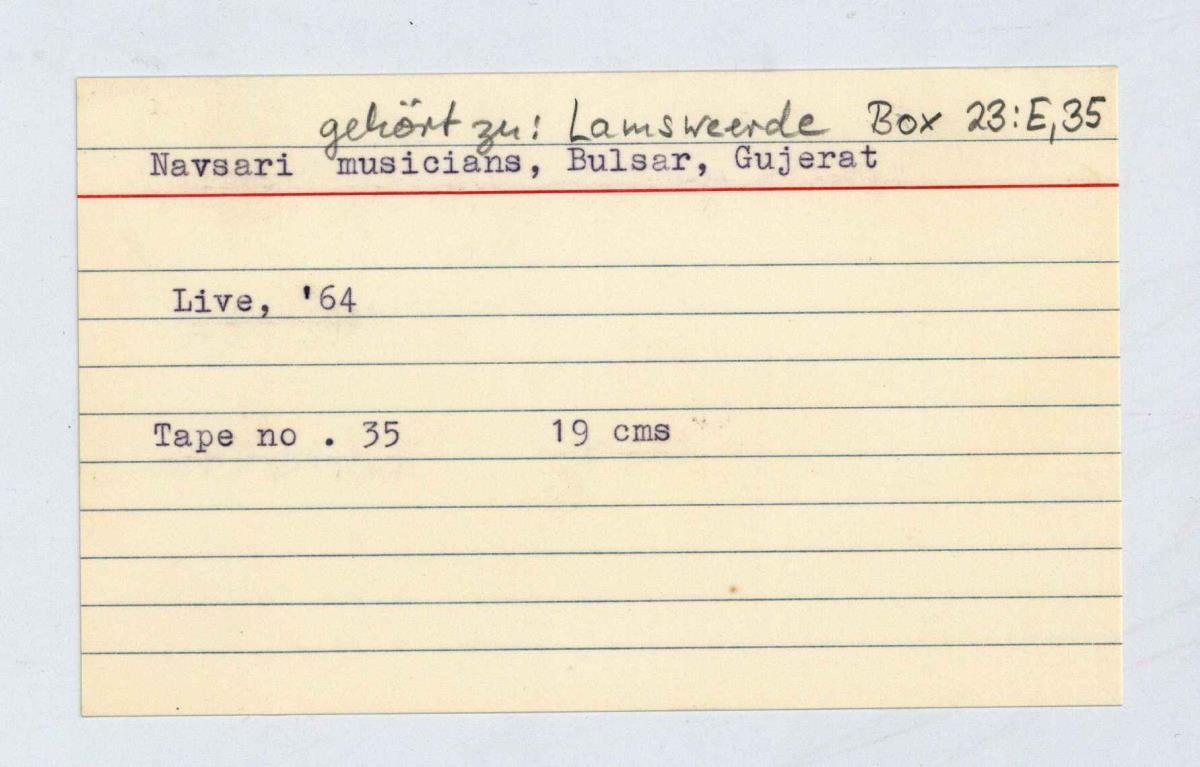 gehört zu: Lamsweerde Box 23:E,35
Navsari musicians, Bulsar, Gujerat
Live, '64
Tape no . 35 19 cms